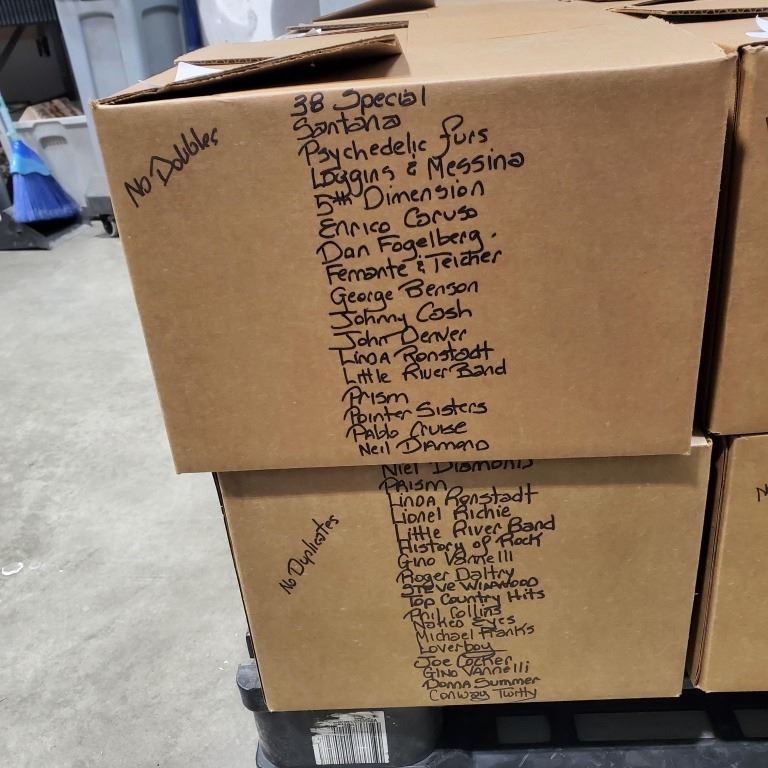 No Doubles
38 Special
Santana
Psychedelic furs
Loggins & Messina
5th Dimension
Enrico Caruso
Dan Fogelberg.
Ferrante & Teicher
George Benson
Johnny Cash
John Denver
Linda Ronstadt
Little River Band
Prism
Pointer Sisters
Pablo Cruise
Neil Diamond
No Duplicates
Niel Diamond
Prism
Linda Ronstadt
Lionel Richie
Little River Band
History of Rock
Gino Vannelli
Roger Daltry
Steve Winwood
Top Country Hits
Phil Collins
Naked Eyes
Michael Franks
Loverboy
Joe Cocker
Gino Vannelli
Donna Summer
Conway Twitty